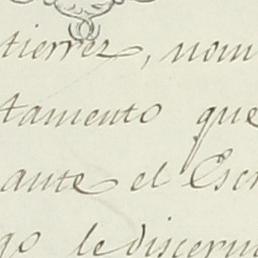 tierrez, nom
tamento que
ante el Esc
go le discern